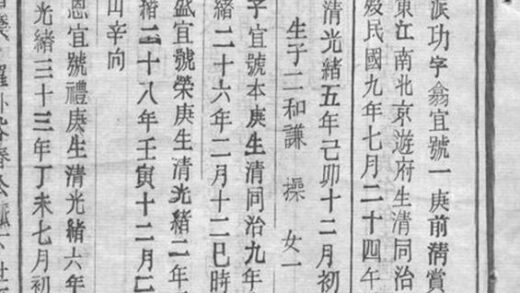 派功字翕宜號一庚前清賞
東江南北京遊府生清同治
殁民國九年七月二十四午
清光緒五年己卯十二月初
生子二和謙 操 女一
字宜號本庚生清同治九年
緒二十六年二月十二巳時
盆宜號榮庚生清光緒二年
緒二十八年壬寅十二月二
山辛向
恩宜號禮庚生清光緒六年
光緒三十三年丁未七月初